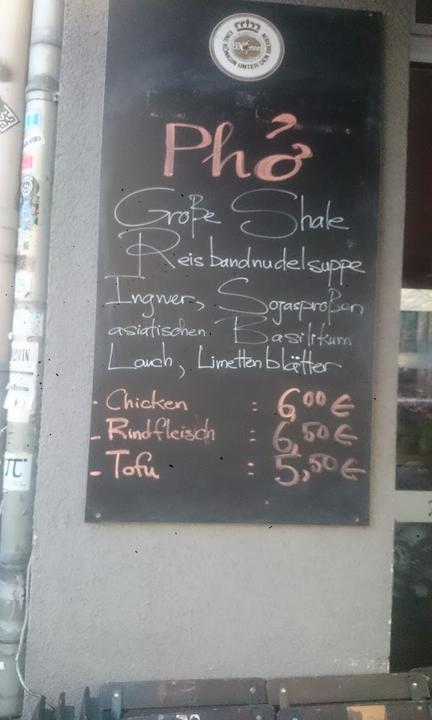 EINE KÖNIGIN UNTER DEN BIEREN
Phở
Große Shale
Reisbandnudelsuppe
Ingwer, Sojasproßen
asiatischen Basilikum
Lauch, Limettenblätter
- Chicken : 6,00 €
- Rindfleisch : 6,50 €
- Tofu : 5,50 €